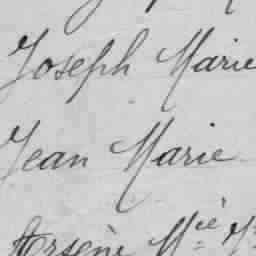 Joseph Marie
Jean Marie
Arsène Mie